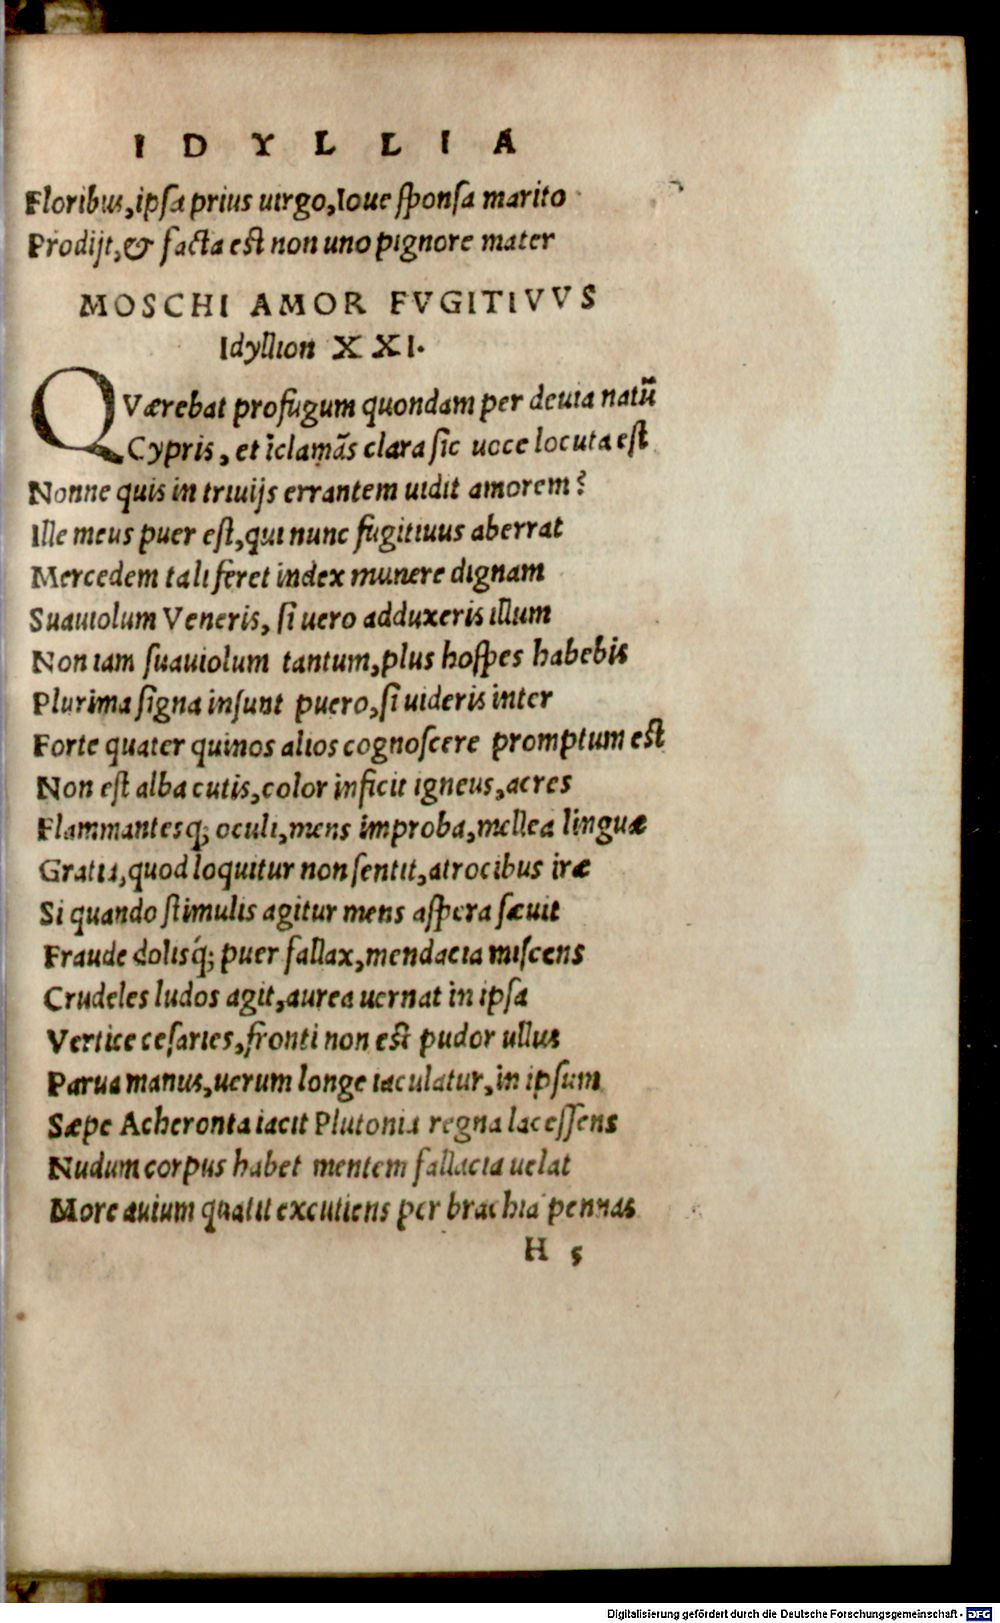 IDYLLIA
Floribus, ipsa prius uirgo, Ioue sponsa marito
Prodijt, & facta est non uno pignore mater
MOSCHI AMOR FVGITIVVS
Idyllion XXI.
QVærebat profugum quondam per deuia natũ
Cypris, et ĩclamãs clara sic uoce locuta est
Nonne quis in triuijs errantem uidit amorem?
Ille meus puer est, qui nunc fugitiuus aberrat
Mercedem tali feret index munere dignam
Suauiolum Veneris, si uero adduxeris illum
Non iam suauiolum tantum, plus hospes habebis
Plurima signa insunt puero, si uideris inter
Forte quater quinos alios cognoscere promptum est
Non est alba cutis, color inficit igneus, acres
Flammantesq; oculi, mens improba, mellea linguæ
Gratia, quod loquitur non sentit, atrocibus iræ
Si quando stimulis agitur mens aspera sæuit
Fraude dolisq́; puer fallax, mendacia miscens
Crudeles ludos agit, aurea uernat in ipsa
Vertice cesaries, fronti non est pudor ullus
Parua manus, uerum longe iaculatur, in ipsum
Sæpe Acheronta iacit Plutonia regna lacessens
Nudum corpus habet mentem fallacia uelat
More auium quatit excutiens per brachia pennas
H 5
Digitalisierung gefördert durch die Deutsche Forschungsgemeinschaft - DFG